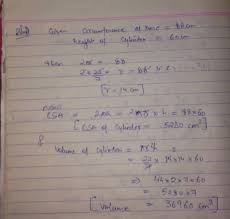 Given circumference of base = 88 cm
height of cylinder = 60 cm
then 2πr = 88
2 × 22/7 × r = 88
[r = 14 cm]
CSA = 2πrh = 88×60
[CSA of Cylinder = 5280 cm²]
Volume of Cylinder = πr²h
= 22/7 × 14 × 14 × 60
⇒ 44×2×7×60
= 5280×7
[Volume = 36960 cm³]